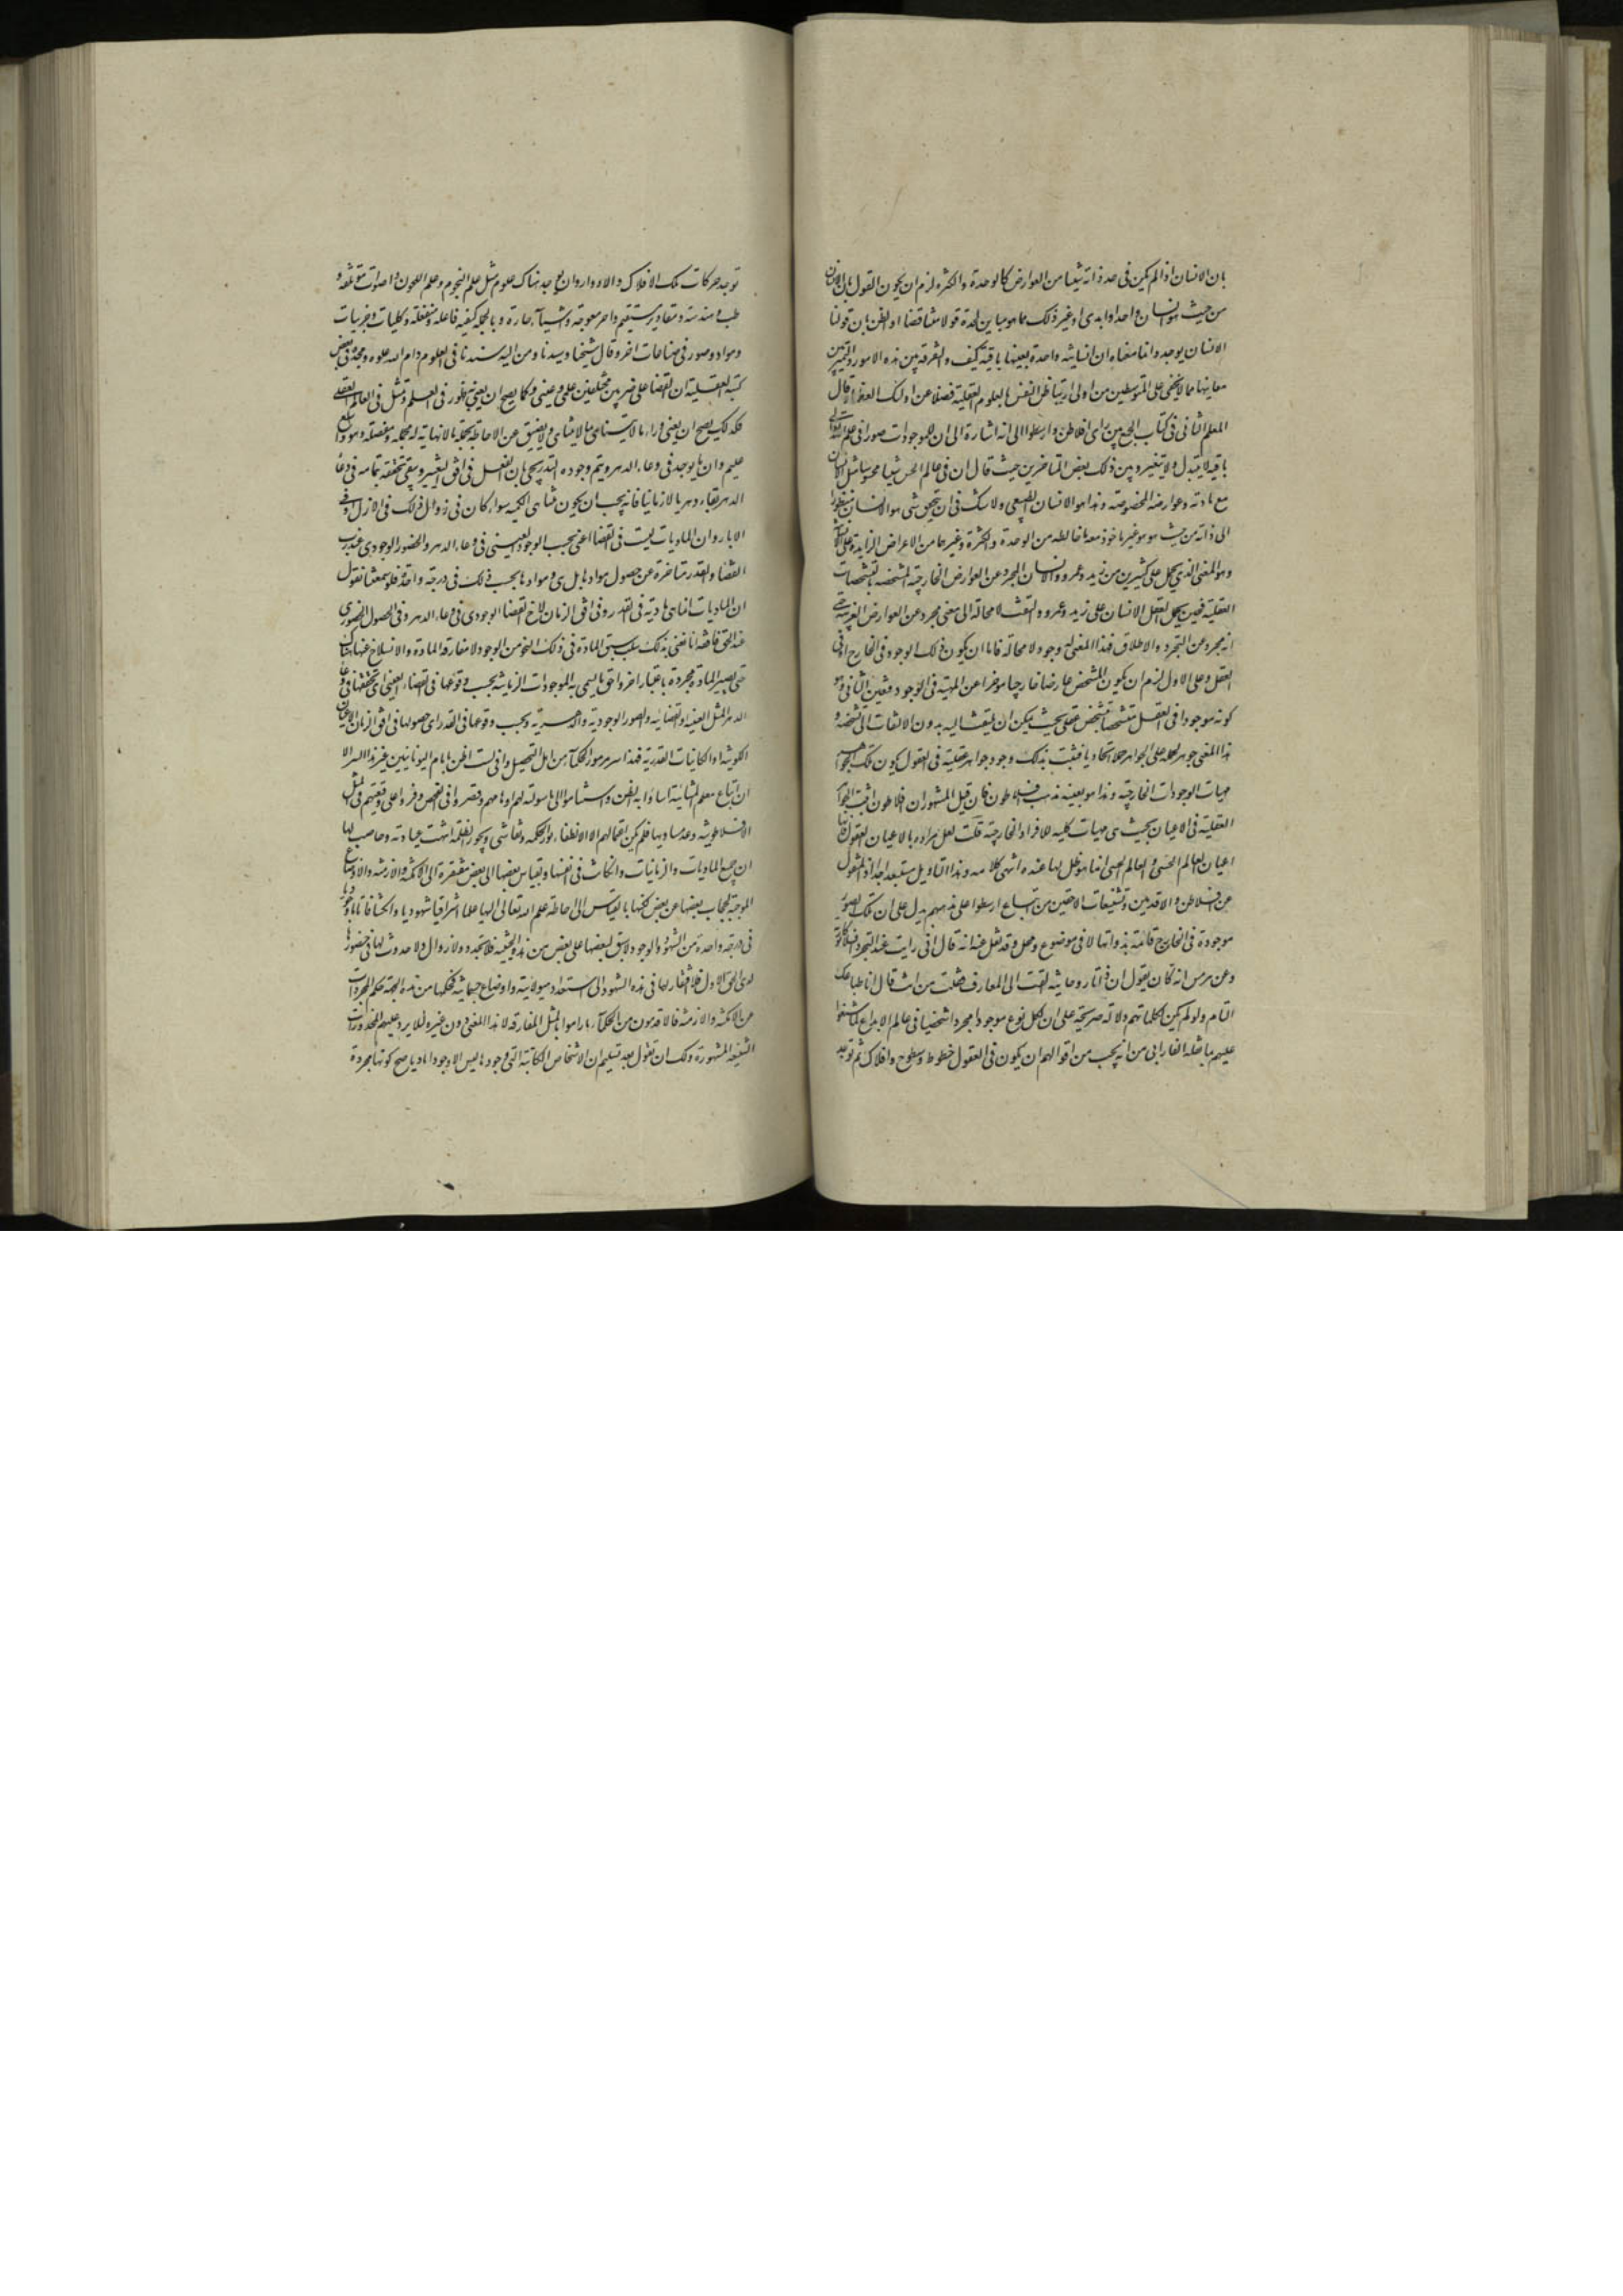 بان الانسان اذا لم يكن في حد ذاته شيئا من العوارض كالوحدة والكثرة لزم ان يكون القول بان الانسان
من حيث هو انسان واحد او ابدي او غير ذلك مما هو مباين لحده قولا مناقضا او الظن بان قولنا
الانسان يوجد دائما معناه ان انسانية واحدة بعينها باقية كيف والتفرقة بين هذه الامور والتمييز بين
معانيها مما لا يخفى على المتوسطين من اولى ارتياض النفس بالعلوم العقلية فضلا عن اولئك العظماء وقال
المعلم الثاني في كتاب الجمع بين رأي افلاطن وارسطوا الى انه اشارة الى ان للموجودات صورا في علم الله تعالى
باقية لا يتبدل ولا يتغير وبين ذلك بعض المتاخرين حيث قال ان في عالم الحس شيئا محسوسا مثل الانسان
مع مادته وعوارضه المخصوصة وهذا هو الانسان الطبيعي ولا شك في ان يتحقق شيء هو الانسان منظورا
الى ذاته من حيث هو هو غير ماخوذ معه ما خالطه من الوحدة والكثرة وغيرهما من الاعراض الزايدة على الانسانية
وهو المعنى الذي يحمل على كثيرين من زيد وعمرو والانسان المجرد عن العوارض الخارجية المشخصة بالتشخصات
العقلية فحين يحمل العقل الانسان على زيد وعمرو والتفت لا محالة الى معنى مجرد عن العوارض الغريبة حتى
انه مجرد عن التجرد والاطلاق فهذا المعنى له وجود لا محالة فاما ان يكون ذلك الوجود في الخارج او في
العقل وعلى الاول لزم ان يكون المشخص عارضا خارجيا موخرا عن المهية في الوجود فتعين الثاني وهو
كونه موجودا في العقل متشخصا بتشخص عقلي بحيث يمكن ان يلتفت اليه بدون الالتفات الى تشخصه و
هذا المعنى جوهر لحمله على الجواهر حملا اتحاديا فثبت بذلك وجود جواهر عقلية في العقول يكون تلك الجواهر
مهيات الموجودات الخارجية وهذا هو بعينه مذهب افلاطون فان قيل المشهور ان افلاطون اثبت الجواهر
العقلية في الاعيان بحيث هي مهيات كلية للافراد الخارجية قلت لعل مراده بالاعيان العقول فانها
اعيان العالم الحسي والعالم الحسي انما هو ظل لها عنده انتهى كلامه وهذا التاويل مستبعد جدا اذ المنقول
عن افلاطن والاقدمين وتشنيعات اللاحقين من اتباع ارسطوا على مذهبهم يدل على ان تلك الصور
موجودة في الخارج قائمة بذواتها لا في موضوع ومحل وقد نقل عنه انه قال اني رايت عند التجرد افلاكا نورية
وعن هرمس انه كان يقول ان ذاتا روحانية القت الى المعارف فقلت من انت قال انا طباعك
التام ولو لم يكن لكلماتهم دلالة صريحة على ان لكل نوع موجودا مجردا شخصيا في عالم الابداع لما شنعوا
عليهم بما نقله الفارابي من انه يجب من اقوالهم ان يكون في العقول خطوط وسطوح وافلاك ثم توجد
توجد حركات تلك الافلاك والادوار وان يوجد هناك علوم مثل علم النجوم وعلم اللحون واصوات مؤتلفة و
طب وهندسة ومقادير مستقيمة واخر معوجة واشياء حارة وبالجملة كيفية فاعلة ومنفعلة وكليات وجزئيات
ومواد وصور في صناعات اخر وقال شيخنا وسيدنا ومن اليه سندنا في العلوم دام الله علوه ومجده في بعض
كتبه العقلية ان القضاء على ضربين مختلفين علمي وعيني وكما يصح ان يعني به ظهور في العلم وتمثل في العالم العقلي
فكذلك يصح ان يعنى وراء ما لا يتناهى بما لا يتناهى ولا يضيق عن الاحاطة بجملة ما لا نهاية له مجملة ومفصلة وهو واسع
عليم وان ما يوجد في وعاء الدهر ويتم وجوده التدريجي بان الفعل في افق التغيير ويبقى تحققه بتمامه في وعاء
الدهر بقاء دهريا لا زمانيا فانه يجب ان يكون متناهى الكمية سواء كان في زوال او ذلك في الازل او في
الاباد وان الماديات ليست في القضاء اعني بحسب الوجود العيني في وعاء الدهر والحضور الوجودي عند رب
القضاء والقدر متاخرة عن حصول موادها بل هي وموادها بحسب ذلك في درجة واحدة فلو سمعتنا نقول
ان الماديات انما هي مادية في القدر وفي افق الزمان لا في القضاء الوجودي في وعاء الدهر وفي الحصول الحضوري
عند الحق فافقه انا نعني بذلك سلب سبق المادة في ذلك النحو من الوجود لا مفارقة المادة والانسلاخ عنها هناك
حتى يصير المادة مجردة باعتبار اخر واحق ما يسمى به الموجودات الزمانية بحسب وقوعها في القضاء العيني اي تحققها في وعاء
الدهر المثل العينية او القضائية والصور الوجودية والدهرية وبحسب وقوعها في القدر اي حصولها في افق الزمان الاعيان
الكونية او الكائنات القدرية فهذا سر مرموز الحكماء من اهل التحصيل واني لست اظن بامام اليونانيين غير هذا السر الا
ان اتباع معلم المشائية اساؤا به الظن واستناموا الى ما سولته لهم اوهامهم وقصروا في الفحص ووفروا على وقيعتهم في المثل
الافلاطونية وعد مساويها فلم يكن اعتمالهم الا لاطفاء نور الحكمة وتفاشي ديجور الظلمة انتهت عبارته وحاصلها
ان جميع الماديات والزمانيات وان كانت في انفسها وبقياس بعضها الى بعض مفتقرة الى الامكنة والازمنة والاوضاع
الموجبة لحجاب بعضها عن بعض لكنها بالقياس الى احاطة علم الله تعالى اليها علما اشراقيا شهوديا وانكشافا تاما وجوديا
في درجة واحدة من الشهود والوجود لا سبق لبعضها على بعض من هذه الحيثية فلا تجدد ولا زوال ولا حدوث لها في حضورها
لدى الحق الاول فلا افتقار لها في هذه الشهود الى استعداد هيولانية واوضاع جسمانية فحكمها من هذه الجهة حكم المجردات
عن الامكنة والازمنة فالاقدمون من الحكماء ما راموا بالمثل المفارقة الا هذا المعنى دون غيره لئلا يرد عليهم المحذورات
الشنيعة المشهورة ولك ان تقول بعد تسليم ان الاشخاص الكائنة التي وجودها ليس الا وجودا ماديا يصح كونها مجردة